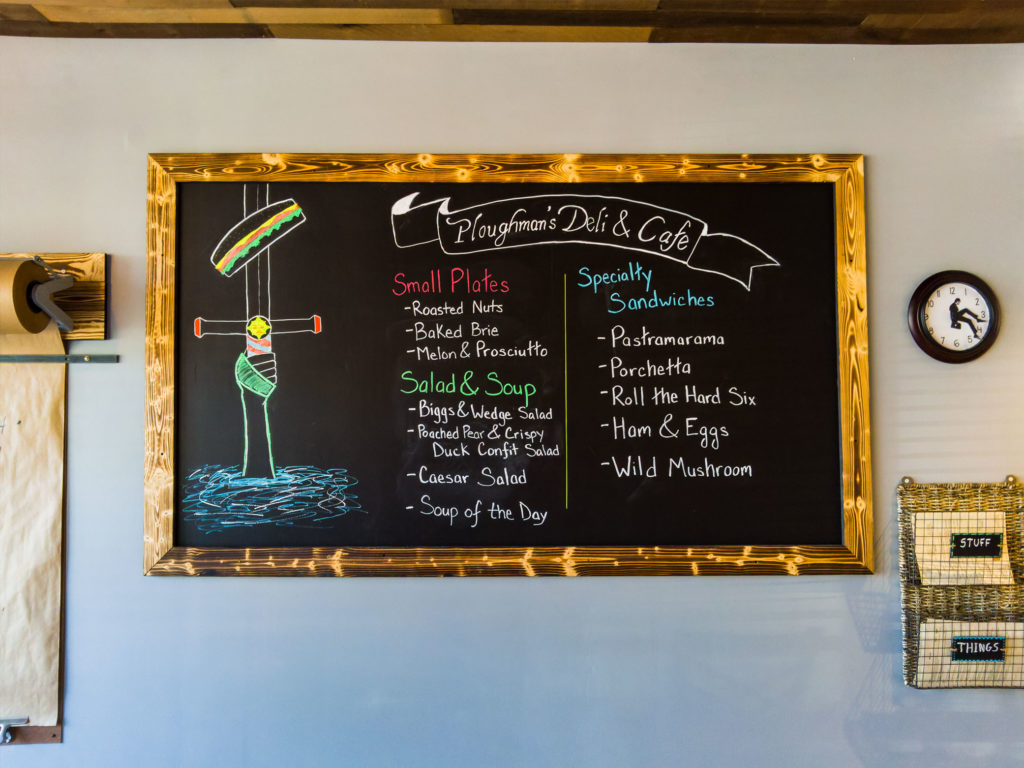 Ploughman's Deli & Cafe
Small Plates
- Roasted Nuts
- Baked Brie
- Melon & Prosciutto
Salad & Soup
- Biggs & Wedge Salad
- Poached Pear & Crispy
Duck Confit Salad
- Caesar Salad
- Soup of the Day
Specialty
Sandwiches
- Pastramarama
- Porchetta
- Roll the Hard Six
- Ham & Eggs
- Wild Mushroom
STUFF
THINGS